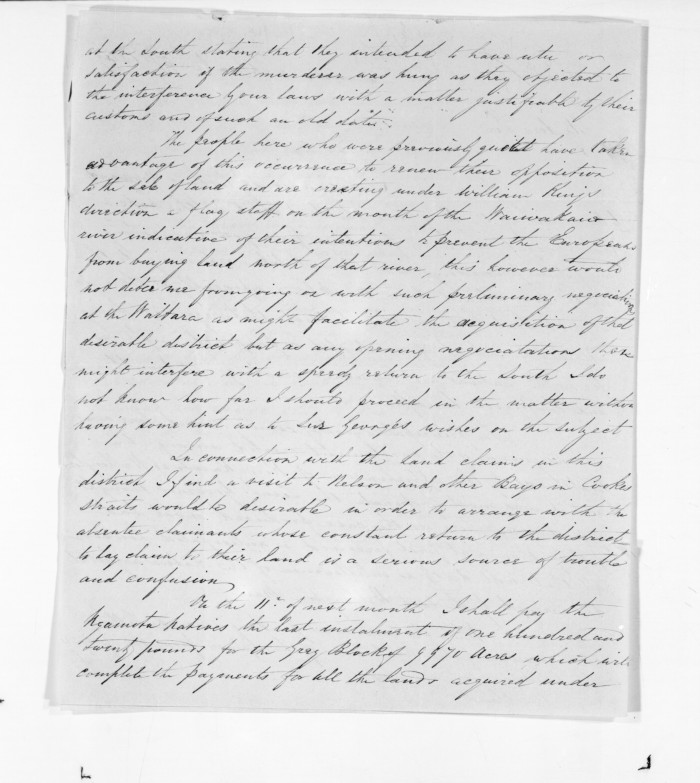 at the South stating that they intended to have utu or
satisfaction if the murderer was hung as they objected to
the interference of our laws with a matter justifiable by their
customs and of such an old date".
The people here who were previously quiet have taken
advantage of this occurrence to renew their opposition
to the sale of land and are erecting under William Kings
direction a flag staff on the mouth of the Waiwakaio
river indicative of their intentions to prevent the Europeans
from buying land north of that river, this however would
not deter me from going on with such preliminary negociations
at the Waitara as might facilitate the acquisition of that
desirable district but as any opening negociatations there
might interfere with a speedy return to the South I do
not know how far I should proceed in the matter without
having some hint as to Sir Georges wishes on the subject
In connection with the land claims in this
district I find a visit to Nelson and other Bays in Cooks
straits would be desirable in order to arrange with the
absentee claimants whose constant return to the district
to lay claim to their land is a serious source of trouble
and confusion,
On the 11th of next month I shall pay the
natives the last instalment of one hundred and
twenty pounds for the Grey Block of 9970 Acres which will
complete the payments for all the lands acquired under